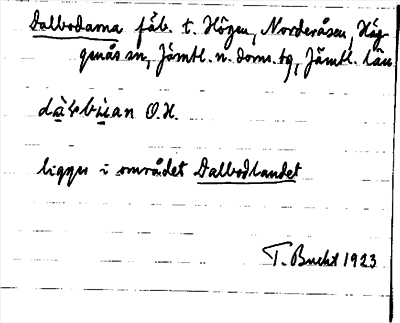 Dalbodarna fäb. t. Högen, Norderåsen, Häg-
genås sn, Jämtl. n. doms. tg, Jämtl. län
O.H.
ligger i området Dalbodlandet
T. Bucht 1923